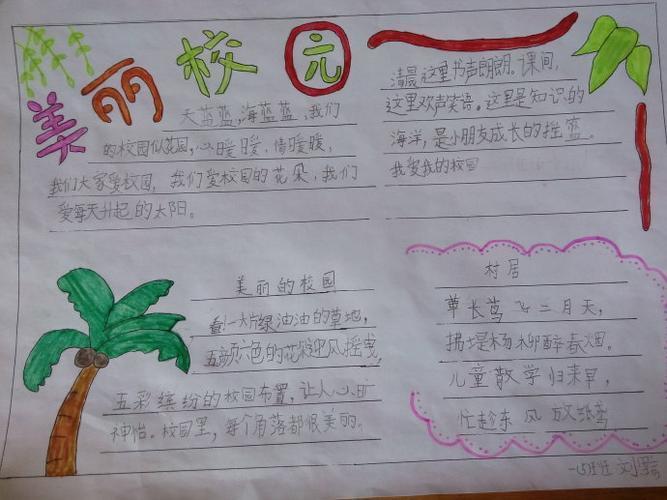 美丽校园
天蓝蓝，海蓝蓝，我们
的校园似花园，心暖暖，情暖暖，
我们大家爱校园，我们爱校园的花朵，我们
爱每天升起的太阳。
清晨这里书声朗朗。课间，
这里欢声笑语。这里是知识的
海洋，是小朋友成长的摇篮。
我爱我的校园
美丽的校园
看!一大片绿油油的草地，
五颜六色的花朵迎风摇曳，
五彩缤纷的校园布置，让人心旷
神怡。校园里，每个角落都很美丽。
村居
草长莺飞二月天，
拂堤杨柳醉春烟。
儿童散学归来早，
忙趁东风放纸鸢
一(5)班 刘